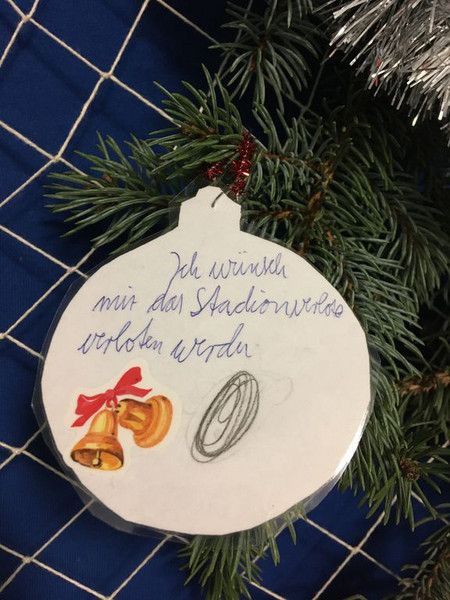 Ich wünsch
mir das Stadionverlose
verloten werden